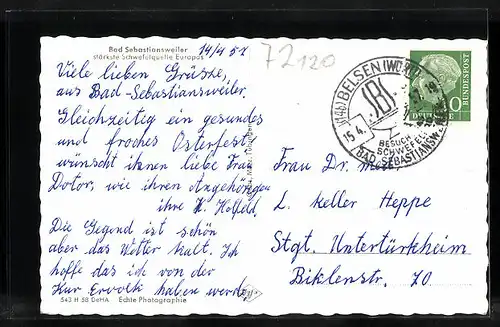 Bad Sebastiansweiler
stärkste Schwefelquelle Europas
14/4 57
72120
Viele lieben Grüsse,
aus Bad-Sebastiansweiler.
Gleichzeitig ein gesundes
und froches Osterfest
wünscht ihnen liebe Frau
Dotor, wie ihren Angehörigen
ihre H.
Die Gegend ist schön
aber das Wetter kalt. Ich
hoffe das ich von der
Kur haben werde.
543 H 58 DeHA Echte Photographie
(14b) BELSEN (WÜRTT)
15.4.
BESUCHT
SCHWEFELBAD
BAD SEBASTIANSW.
DEUTSCHE
BUNDESPOST
10
Frau Dr.
L. Keller Heppe
Stgt. Untertürkheim
Biklenstr. 70